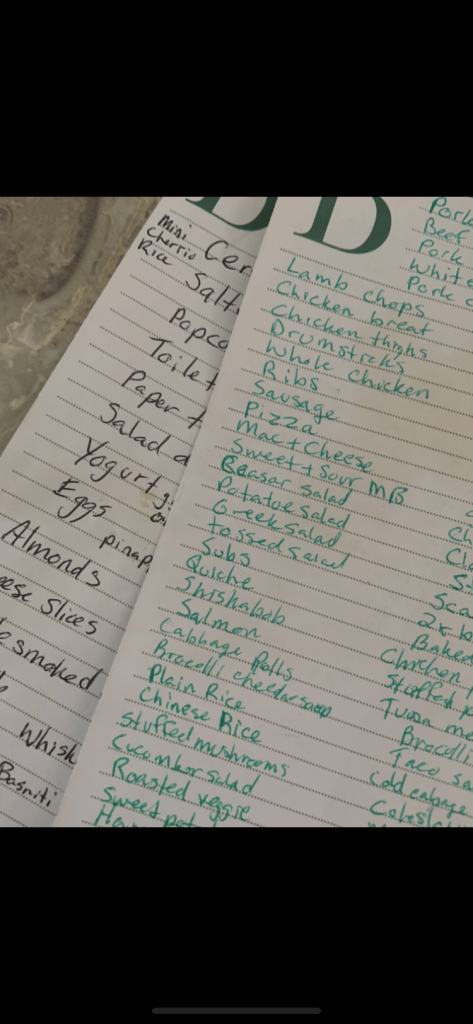 D
mini
Cherrio
Rice
Salt
Toilet
Paper
Salad
Yogurt
Eggs
pinap
Almonds
Slices
smoked
Whisk
Basmiti
D
Pork
Beef
Pork
White
Pork
Lamb chops
Chicken breat
Chicken thighs
Drumsticks
Whole Chicken
Ribs
Sausage
Pizza
Mac + Cheese
Sweet + Sour MB
Ceasar Salad
Potatoe Salad
Greek Salad
tossed salad
Subs
Quiche
Shishabab
Salmon
Cabbage Rolls
Brocelli chedar soup
Plain Rice
Chinese Rice
Stuffed mushrooms
Cucumbor Salad
Roasted veggie
Sweet pot
Ch
Sca
2x
Baked
Chicken
Stuffed
Tuna me
Brocelli
Taco sa
Coleslaw